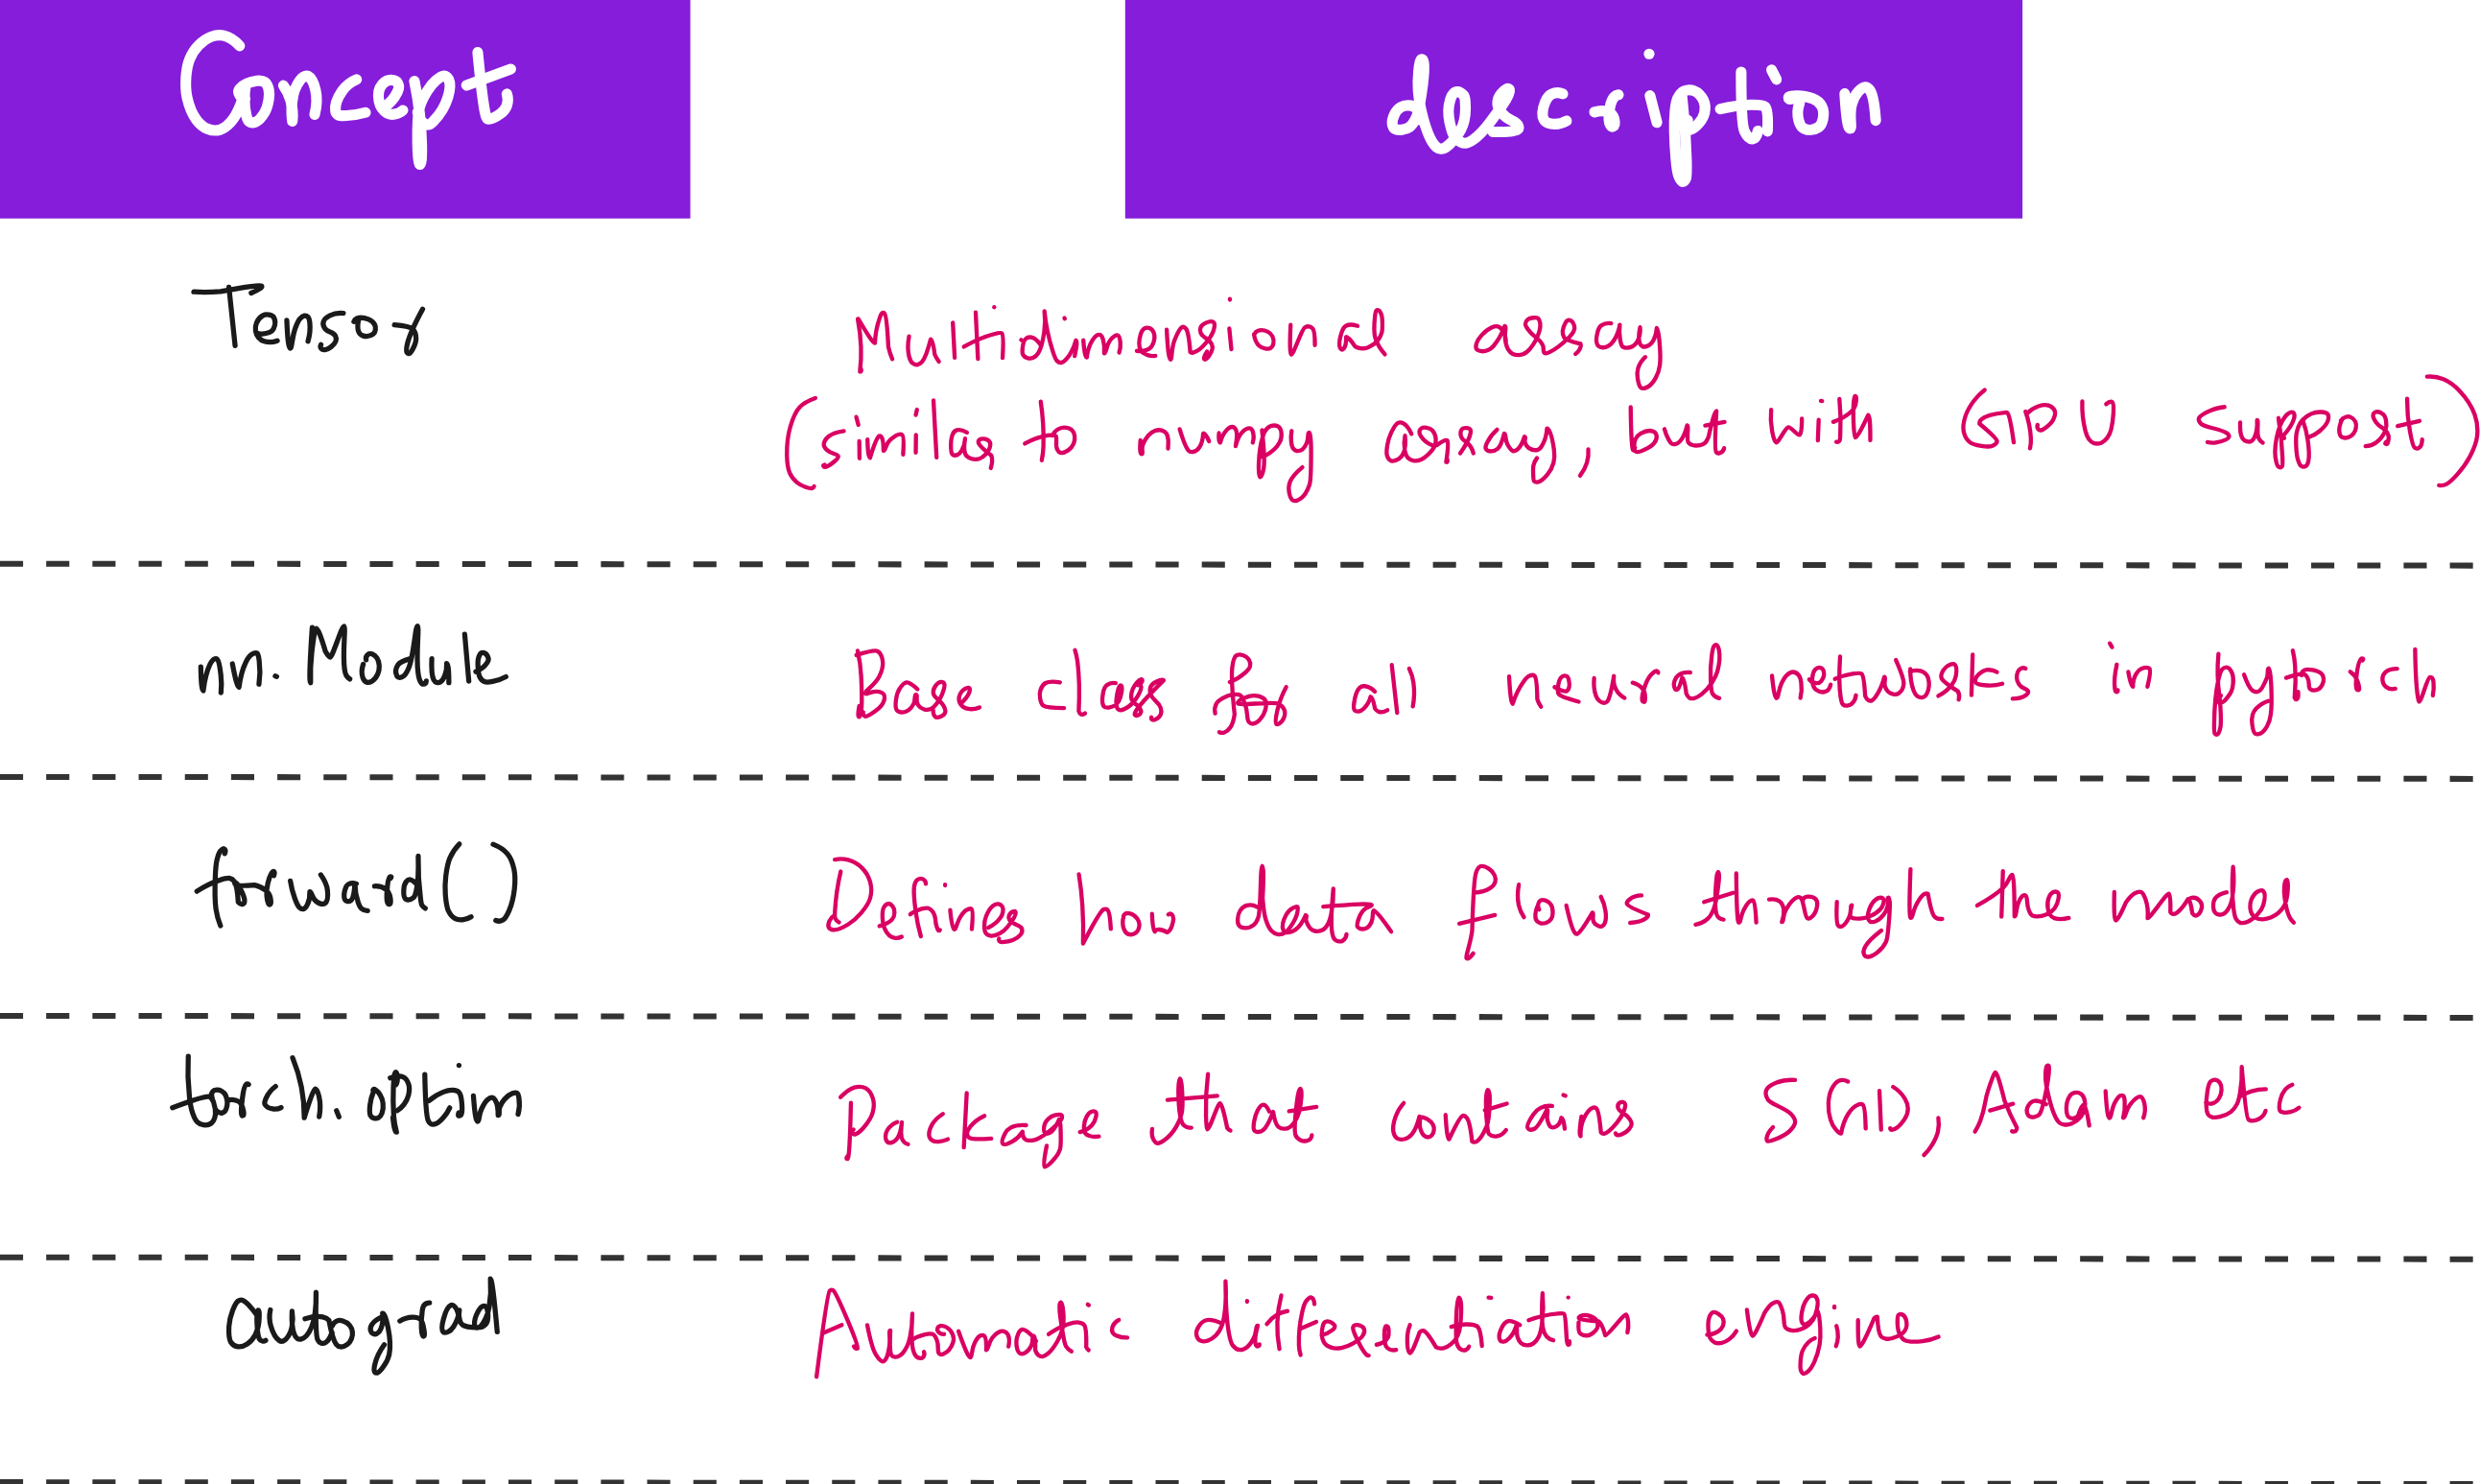 Concept description
Tensor Multidimensional array
(similar to numpy array, but with GPU support)
nn.Module Base class for all neural networks in pytorch
forward() Defines how data flows through the model
torch.optim Package that contains SGD, Adam etc
autograd Automatic differentiation engine